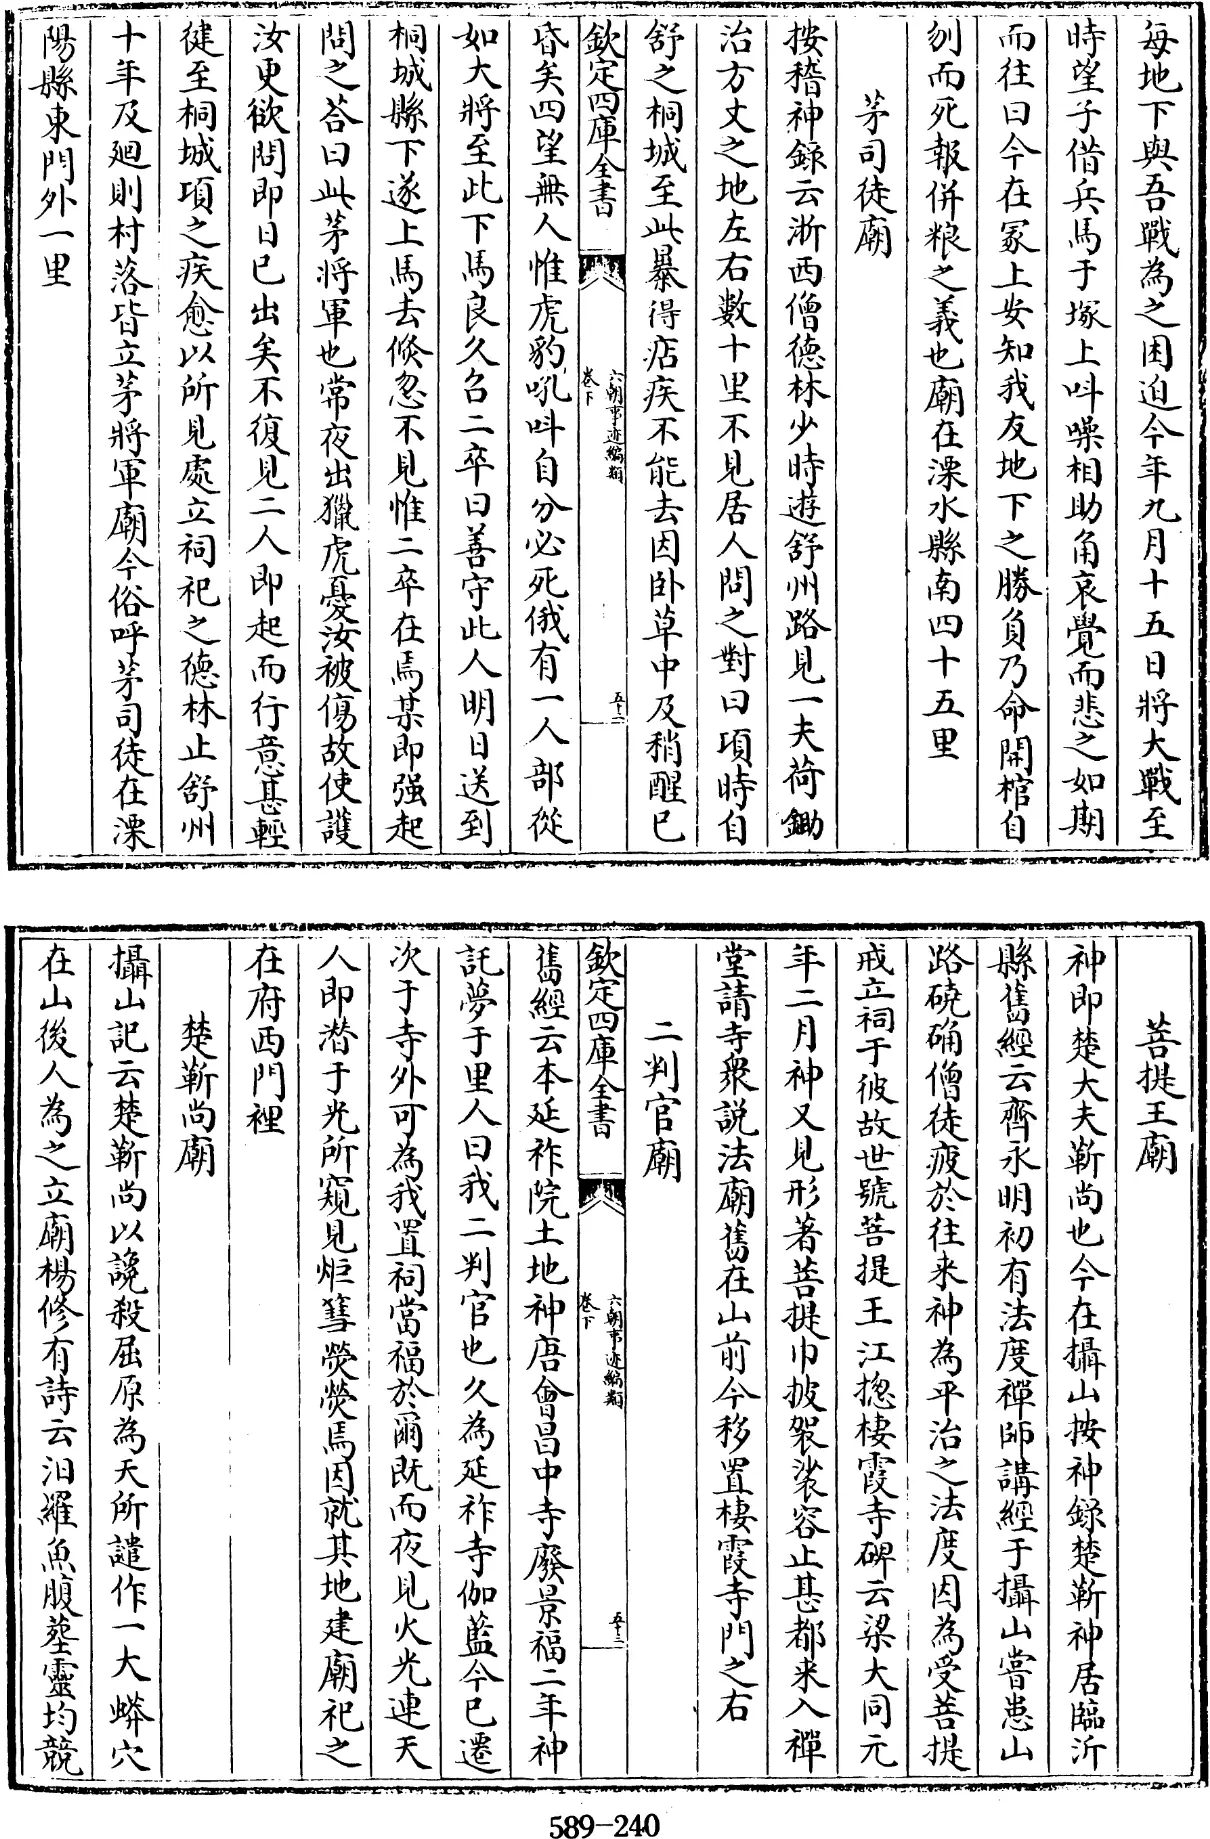 每地下與吾戰為之困迫今年九月十五日將大戰至
時望子借兵馬于塚上呌噪相助角哀覺而悲之如期
而往曰今在冢上安知我友地下之勝負乃命開棺自
刎而死報併粮之義也廟在溧水縣南四十五里
茅司徒廟
按稽神錄云浙西僧德林少時遊舒州路見一夫荷鋤
治方丈之地左右數十里不見居人問之對曰頃時自
舒之桐城至此暴得痁疾不能去因卧草中及稍醒已
欽定四庫全書
六朝事迹編類
卷下
五十二
昏矣四望無人惟虎豹吼呌自分必死俄有一人部從
如大將至此下馬良久召二卒曰善守此人明日送到
桐城縣下遂上馬去倐忽不見惟二卒在焉某即强起
問之荅曰此茅將軍也常夜出獵虎憂汝被傷故使護
汝更欲問即日已出矣不復見二人即起而行意甚輕
徤至桐城頃之疾愈以所見處立祠祀之德林止舒州
十年及廻則村落皆立茅將軍廟今俗呼茅司徒在溧
陽縣東門外一里
菩提王廟
神即楚大夫靳尚也今在攝山按神錄楚靳神居臨沂
縣舊經云齊永明初有法度禪師講經于攝山嘗患山
路磽确僧徒疲於往来神為平治之法度因為受菩提
戒立祠于彼故世號菩提王江揔棲霞寺碑云梁大同元
年二月神又見形著菩提巾披袈裟容止甚都来入禪
堂請寺衆説法廟舊在山前今移置棲霞寺門之右
二判官廟
欽定四庫全書
六朝事迹編類
卷下
五十三
舊經云本延祚院土地神唐會昌中寺廢景福二年神
託夢于里人曰我二判官也久為延祚寺伽藍今已遷
次于寺外可為我置祠當福於爾既而夜見火光連天
人即潜于光所窺見炬篲熒熒焉因就其地建廟祀之
在府西門裡
楚靳尚廟
攝山記云楚靳尚以讒殺屈原為天所譴作一大蟒穴
在山後人為之立廟楊修有詩云汨羅魚腹塟靈均競
589-240